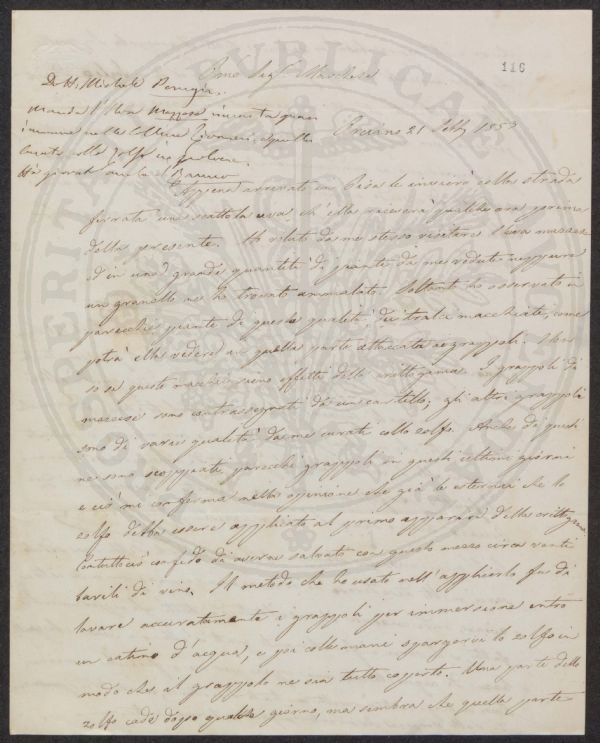 116
Sigr Marchese
Dr H. Michele Perugia.
manda l'Uva mezzosa
immune nelle Colline Pisane; e quella
curata collo Zolfo in polvere.
Pruino 21 7bre 1853
Appena arrivato in Pisa le invierò colla strada
ferrata una scattola uva ch'ella riceverà qualche ora prima
della presente. Ho voluto da me stesso visitare l'uva
ed in una grande quantità di piante da me vedute neppure
un granello ne ho trovato ammalato. Soltanto ho osservato in
parecchie piante di questa qualità dei tralci macchiati, come
potrà ella vedere in quella parte attaccata ai grappoli. Non
so se queste macchie siano effetti della crittogama. I grappoli di
sono contrassegnati da un cartello; gli altri grappoli
sono di varie qualità da me curati collo zolfo. Anche da questi
ne sono scoppiati parecchi grappoli in questi ultimi giorni
e ciò me conferma nella opinione che già le esternai che lo
zolfo debba essere applicato al primo apparire della crittogama
Contuttociò confido di avere salvato con questo mezzo circa venti
barili di vino. Il metodo che ho usato nell'applicarlo fu di
lavare accuratamente i grappoli per immersione entro
un catino d'acqua, e poi colle mani spargervi lo zolfo in
modo che il grappolo ne sia tutto coperto. Una parte dello
zolfo cade dopo qualche giorno, ma sembra che quella parte